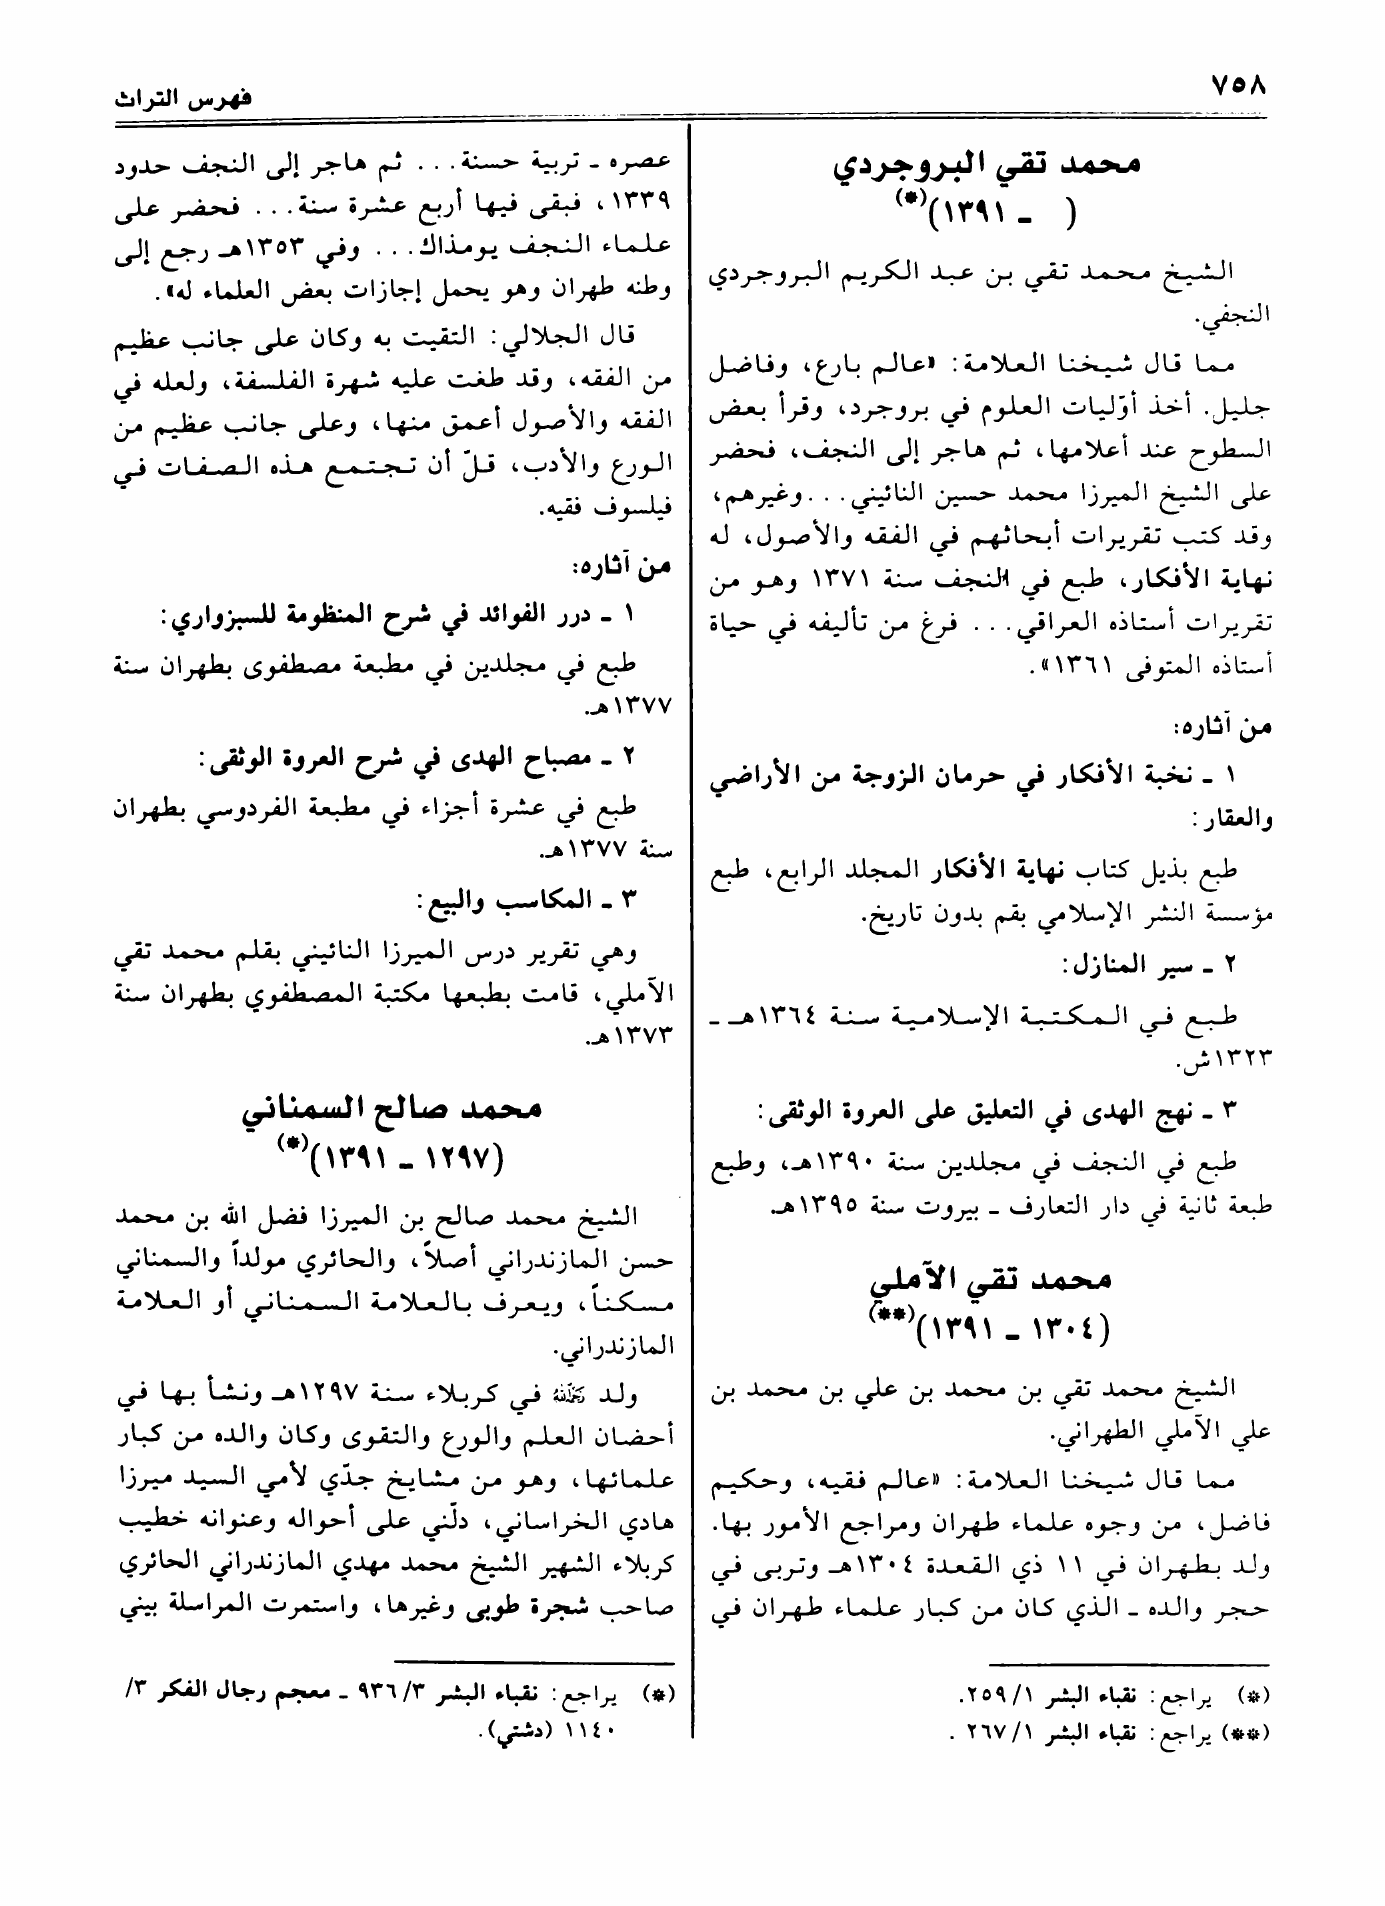 ٧٥٨
فهرس التراث
محمد تقي البروجردي
( ـ ١٣٩١)(*)
الشيخ محمد تقي بن عبد الكريم البروجردي
النجفي.
مما قال شيخنا العلامة: «عالم بارع، وفاضل
جليل. أخذ أوّليات العلوم في بروجرد، وقرأ بعض
السطوح عند أعلامها، ثم هاجر إلى النجف، فحضر
على الشيخ الميرزا محمد حسين النائيني...وغيرهم،
وقد كتب تقريرات أبحاثهم في الفقه والأصول، له
نهاية الأفكار، طبع في النجف سنة ١٣٧١ وهو من
تقريرات أستاذه العراقي... فرغ من تأليفه في حياة
أستاذه المتوفى ١٣٦١».
من آثاره:
١ ـ نخبة الأفكار في حرمان الزوجة من الأراضي
والعقار:
طبع بذيل كتاب نهاية الأفكار المجلد الرابع، طبع
مؤسسة النشر الإسلامي بقم بدون تاريخ.
٢ ـ سير المنازل:
طبع في المكتبة الإسلامية سنة ١٣٦٤هـ ـ
١٣٢٣ش.
٣ ـ نهج الهدى في التعليق على العروة الوثقى:
طبع في النجف في مجلدين سنة ١٣٩٠هـ، وطبع
طبعة ثانية في دار التعارف ـ بيروت سنة ١٣٩٥هـ.
محمد تقي الآملي
(١٣٠٤ ـ ١٣٩١)(**)
الشيخ محمد تقي بن محمد بن علي بن محمد بن
علي الآملي الطهراني.
مما قال شيخنا العلامة: «عالم فقيه، وحكيم
فاضل، من وجوه علماء طهران ومراجع الأمور بها.
ولد بطهران في ١١ ذي القعدة ١٣٠٤هـ وتربى في
حجر والده ـ الذي كان من كبار علماء طهران في
(*) يراجع: نقباء البشر ١/ ٢٥٩.
(**) يراجع: نقباء البشر ١/ ٢٦٧ .
عصره ـ تربية حسنة... ثم هاجر إلى النجف حدود
١٣٣٩، فبقى فيها أربع عشرة سنة... فحضر على
علماء النجف يومذاك... وفي ١٣٥٣هـ رجع إلى
وطنه طهران وهو يحمل إجازات بعض العلماء له».
قال الجلالي: التقيت به وكان على جانب عظيم
من الفقه، وقد طغت عليه شهرة الفلسفة، ولعله في
الفقه والأصول أعمق منها، وعلى جانب عظيم من
الورع والأدب، قلّ أن تجتمع هذه الصفات في
فيلسوف فقيه.
من آثاره:
١ ـ درر الفوائد في شرح المنظومة للسبزواري:
طبع في مجلدين في مطبعة مصطفوى بطهران سنة
١٣٧٧هـ.
٢ ـ مصباح الهدى في شرح العروة الوثقى:
طبع في عشرة أجزاء في مطبعة الفردوسي بطهران
سنة ١٣٧٧هـ.
٣ ـ المكاسب والبيع:
وهي تقرير درس الميرزا النائيني بقلم محمد تقي
الآملي، قامت بطبعها مكتبة المصطفوي بطهران سنة
١٣٧٣هـ.
محمد صالح السمناني
(١٢٩٧ ـ ١٣٩١)(*)
الشيخ محمد صالح بن الميرزا فضل الله بن محمد
حسن المازندراني أصلاً، والحائري مولداً والسمناني
مسكناً، ويعرف بالعلامة السمناني أو العلامة
المازندراني.
ولد رحمه الله في كربلاء سنة ١٢٩٧هـ ونشأ بها في
أحضان العلم والورع والتقوى وكان والده من كبار
علمائها، وهو من مشايخ جدّي لأمي السيد ميرزا
هادي الخراساني، دلّني على أحواله وعنوانه خطيب
كربلاء الشهير الشيخ محمد مهدي المازندراني الحائري
صاحب شجرة طوبى وغيرها، واستمرت المراسلة بيني
(*) يراجع: نقباء البشر ٣/ ٩٣٦ ـ معجم رجال الفكر ٣/
١١٤٠ (دشتي).